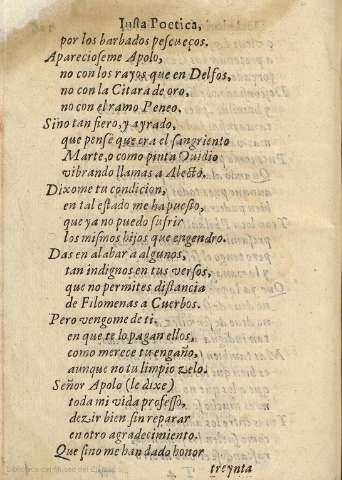 Iusta Poetica,
por los barbados pescueços.
Aparecioseme Apolo,
no con los rayos que en Delfos,
no con la Citara de oro,
no con el ramo Peneo.
Sino tan fiero, y ayrado,
que pensè que era el sangriento
Marte, o como pinta Ouidio
vibrando llamas a Alecto.
Dixome tu condicion,
en tal estado me ha puesto,
que ya no puedo sufrir
los mismos hijos que engendro.
Das en alabar a algunos,
tan indignos en tus versos,
que no permites distancia
de Filomenas a Cuerbos.
Pero vengome de ti,
en que te lo pagan ellos,
como merece tu engaño,
aunque no tu limpio zelo.
Señor Apolo (le dixe)
toda mi vida professo,
dezir bien sin reparar
en otro agradecimiento.
Que sino me han dado honor
treynta
Biblioteca del Museo del